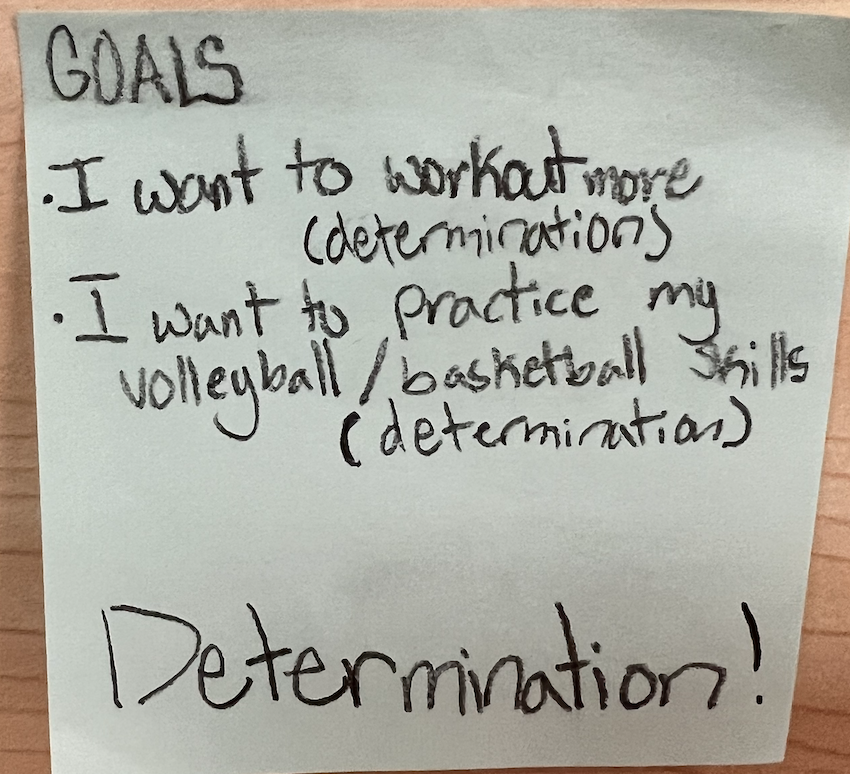 GOALS
· I want to workout more
(determination)
· I want to practice my
volleyball / basketball skills
(determination)
Determination!